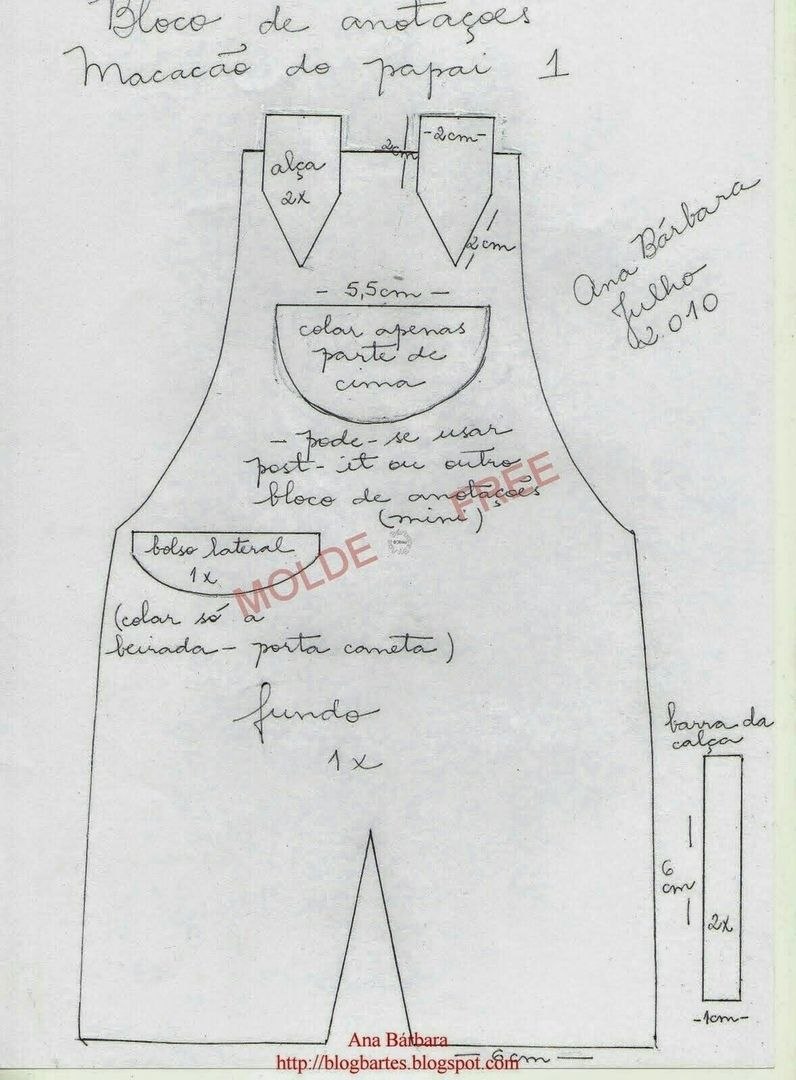 Bloco de anotações
Macacão do papai 1
alça
2x
2cm
-2cm-
2cm
Ana Bárbara
Julho
2.010
- 5,5cm -
colar apenas
parte de
cima
- pode-se usar
post-it ou outro
bloco de anotações
(mini)
MOLDE FREE
bolso lateral
1x
(colar só a
beirada - porta caneta)
fundo
1x
barra da
calça
6
cm
2x
-1cm-
- 6cm -
Ana Bárbara
http://blogbartes.blogspot.com